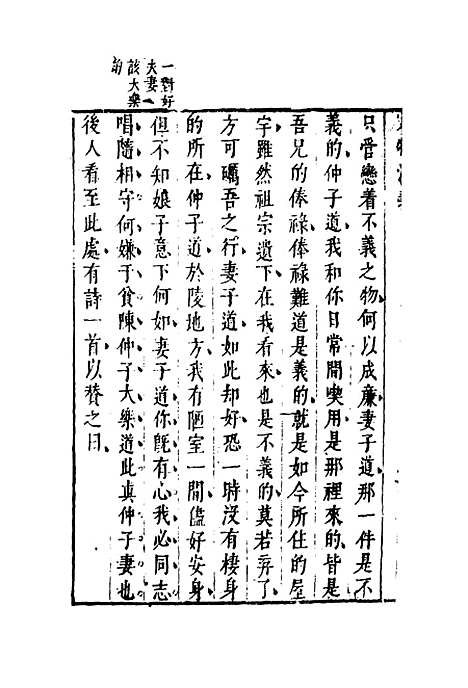 一對好
夫妻
該大樂
只管戀着不義之物何以成廉妻子道那一件是不
義的仲子道我和你日常間喫用是那裡來的皆是
吾兄的俸祿俸祿難道是義的就是如今所住的屋
宇雖然祖宗遺下在我看來也是不義的莫若弃了
方可礪吾之行妻子道如此却好恐一時沒有棲身
的所在仲子道於陵地方我有陋室一間儘好安身
但不知娘子意下何如妻子道你既有心我必同志
唱隨相守何嫌于貧陳仲子大樂道此真仲子妻也
後人看至此處有詩一首以贊之曰